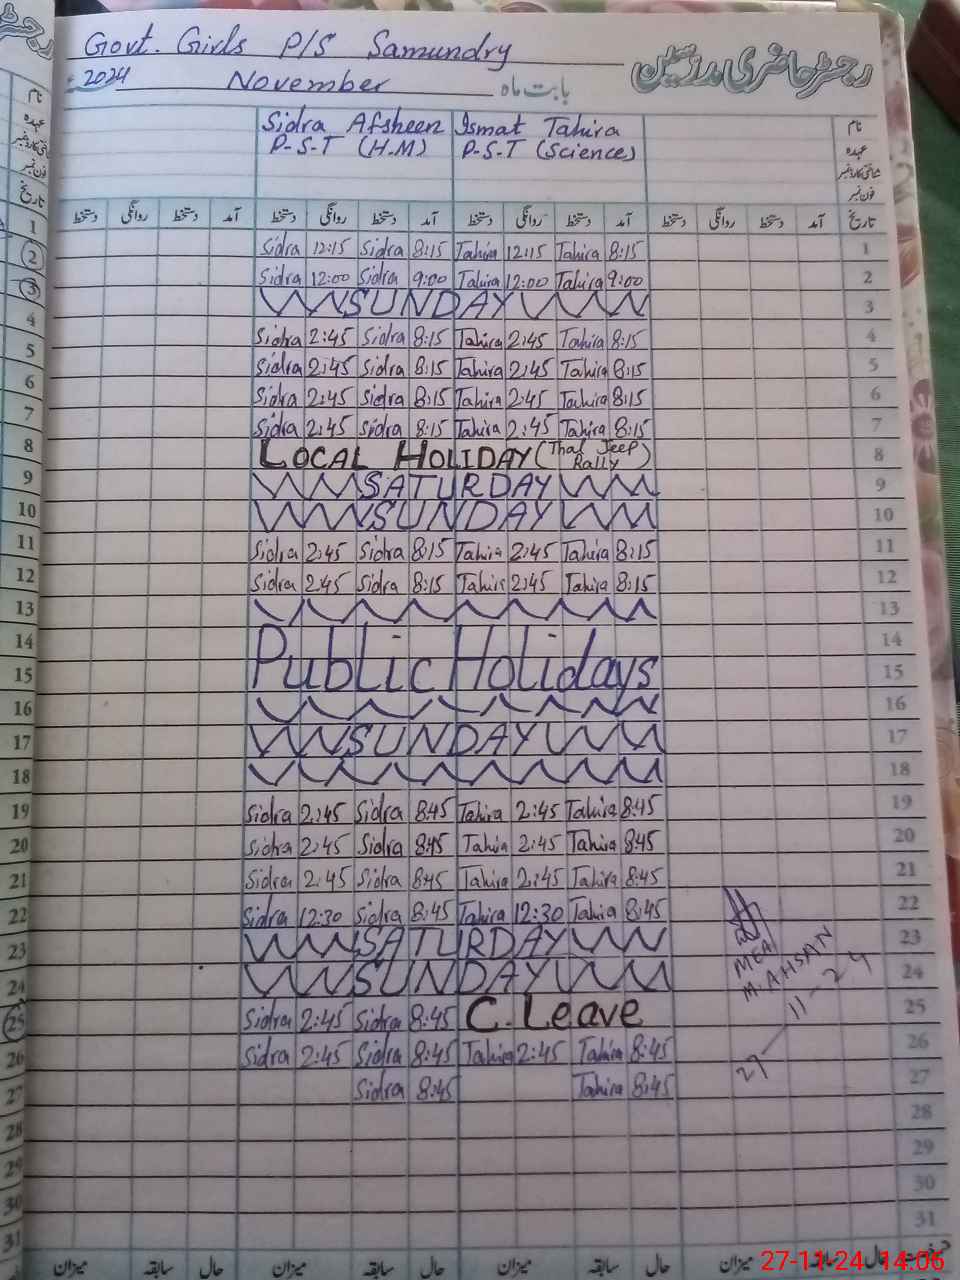 Govt. Girls P/S Samundry
رجسٹر حاضری مدرسین
2024 November بابت ماہ
Sidra Afsheen Ismat Tahira نام
P-S-T (H.M) P-S-T (Science) عہدہ
شناختی کارڈ نمبر
فون نمبر
دستخط روانگی دستخط آمد دستخط روانگی دستخط آمد دستخط روانگی دستخط آمد دستخط روانگی دستخط آمد تاریخ
1 Sidra 12:15 Sidra 8:15 Tahira 12:15 Tahira 8:15 1
2 Sidra 12:00 Sidra 9:00 Tahira 12:00 Tahira 9:00 2
3 SUNDAY 3
4 Sidra 2:45 Sidra 8:15 Tahira 2:45 Tahira 8:15 4
5 Sidra 2:45 Sidra 8:15 Tahira 2:45 Tahira 8:15 5
6 Sidra 2:45 Sidra 8:15 Tahira 2:45 Tahira 8:15 6
7 Sidra 2:45 Sidra 8:15 Tahira 2:45 Tahira 8:15 7
8 LOCAL HOLIDAY (Thal Jeep Rally) 8
9 SATURDAY 9
10 SUNDAY 10
11 Sidra 2:45 Sidra 8:15 Tahira 2:45 Tahira 8:15 11
12 Sidra 2:45 Sidra 8:15 Tahira 2:45 Tahira 8:15 12
13 13
14 Public Holidays 14
15 15
16 16
17 SUNDAY 17
18 18
19 Sidra 2:45 Sidra 8:45 Tahira 2:45 Tahira 8:45 19
20 Sidra 2:45 Sidra 8:45 Tahira 2:45 Tahira 8:45 20
21 Sidra 2:45 Sidra 8:45 Tahira 2:45 Tahira 8:45 21
22 Sidra 12:30 Sidra 8:45 Tahira 12:30 Tahira 8:45 22
23 SATURDAY 23
24 SUNDAY 24
25 Sidra 2:45 Sidra 8:45 C. Leave 25
26 Sidra 2:45 Sidra 8:45 Tahira 2:45 Tahira 8:45 26
27 Sidra 8:45 Tahira 8:45 27
28 28
29 29
30 30
31 31
MEA
M. AHSAN
27-11-24
میزان سابقہ حال میزان سابقہ حال میزان سابقہ حال میزان سابقہ حال
27-11-24 14:06